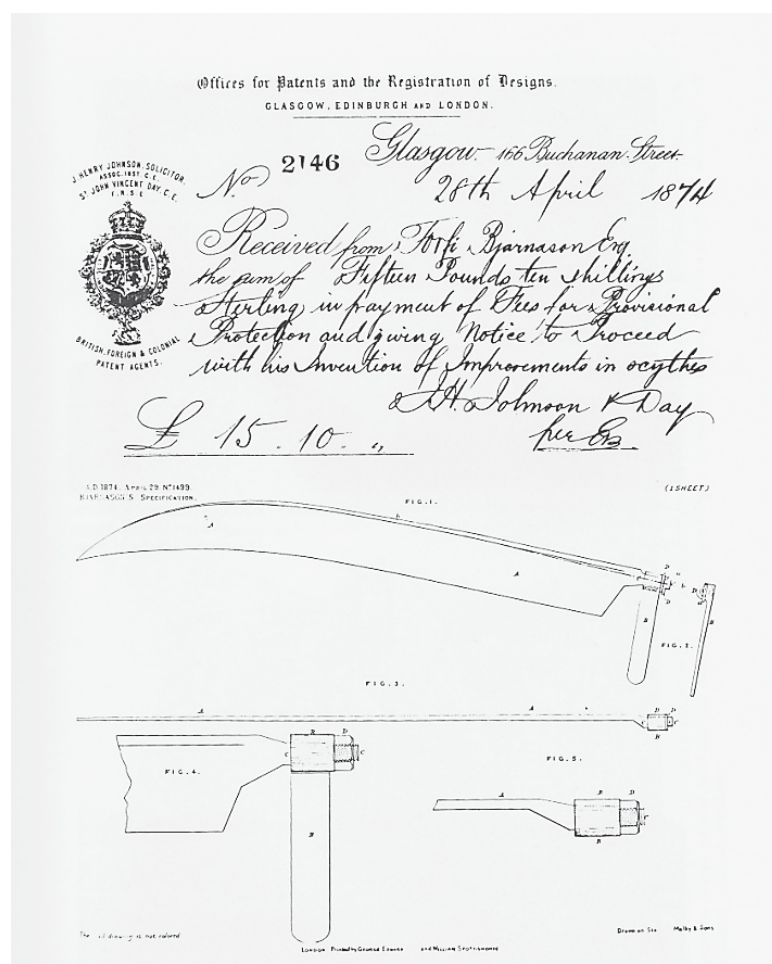 Offices for Patents and the Registration of Designs.
GLASGOW, EDINBURGH AND LONDON.
J. HENRY JOHNSON, SOLICITOR,
ASSOC. INST. C.E.
ST. JOHN VINCENT DAY, C.E.
F.R.S.E.
BRITISH, FOREIGN & COLONIAL
PATENT AGENTS.
No 2146
Glasgow 166 Buchanan Street
28th April 1874
Received from Torfi Bjarnason Esq.
the sum of Fifteen Pounds ten shillings
Sterling in payment of Fees for Provisional
Protection and giving Notice to Proceed
with his Invention of Improvements in scythes
J.H. Johnson & Day
per
£ 15.10.„
A.D. 1874. APRIL 29. No 1499.
SPECIFICATION.
(1 SHEET)
FIG. 1.
A
b
A
D
C
D
B
FIG. 2.
D
B
FIG. 3.
A
A
D D
C C
B
FIG. 4.
B D
C C
B
FIG. 5.
A
B D
C
B
The drawing is not colored
LONDON. Printed by GEORGE EDWARD and WILLIAM SPOTTISWOODE
Drawn on Stone Malby & Sons